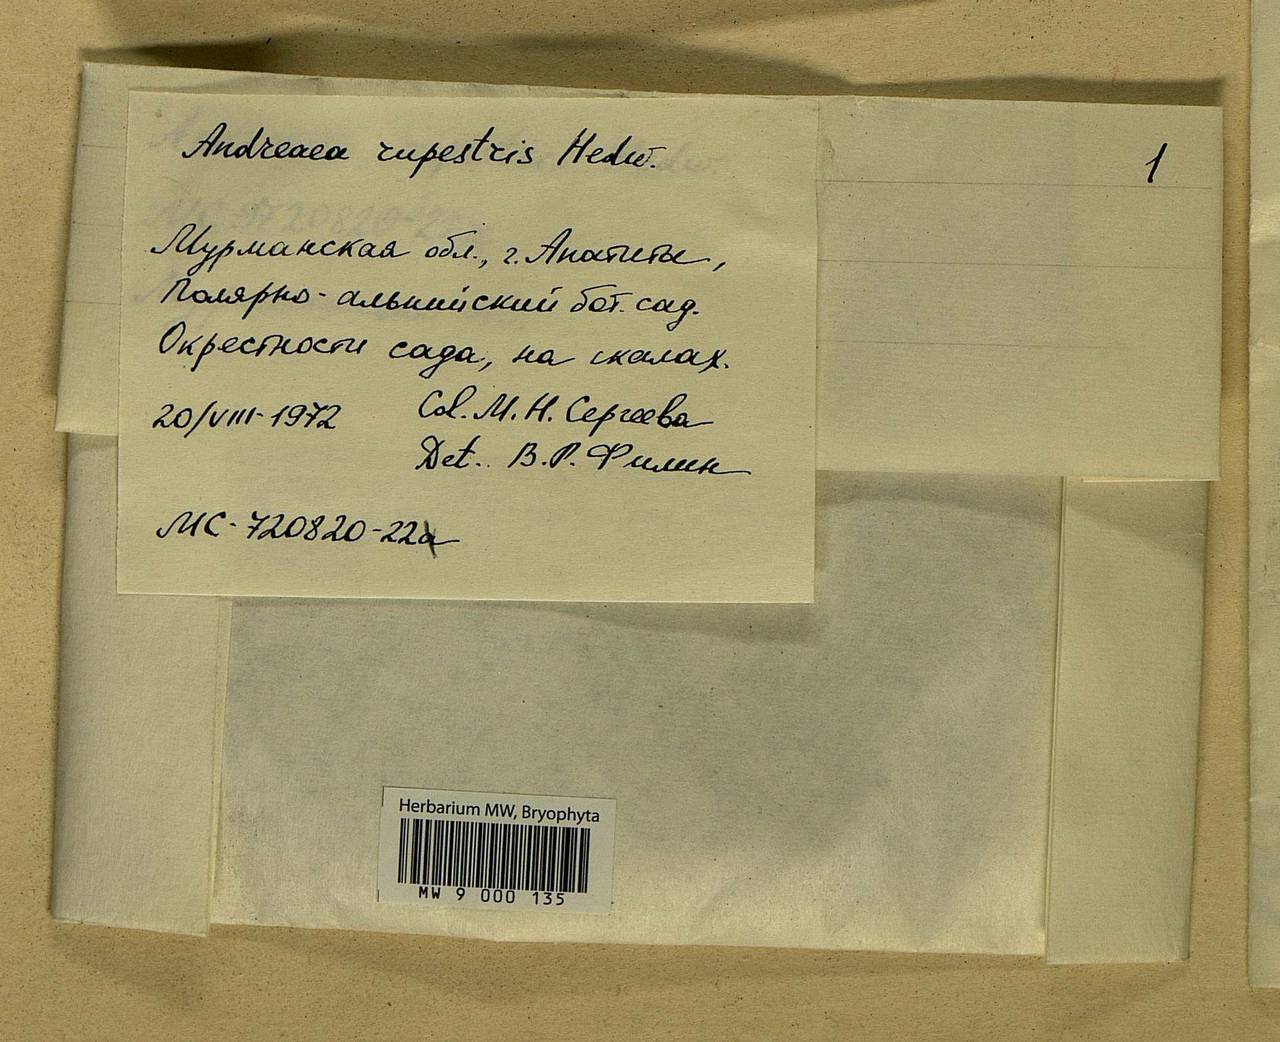 Andreaea rupestris Hedw.
1
Мурманская обл., г. Апатиты,
Полярно-альпийский бот. сад.
Окрестности сада, на скалах.
20/VIII-1972 Col. М.Н. Сергеева
Det. В.Р. Филин
МС-720820-22а
Herbarium MW, Bryophyta
MW 9 000 135